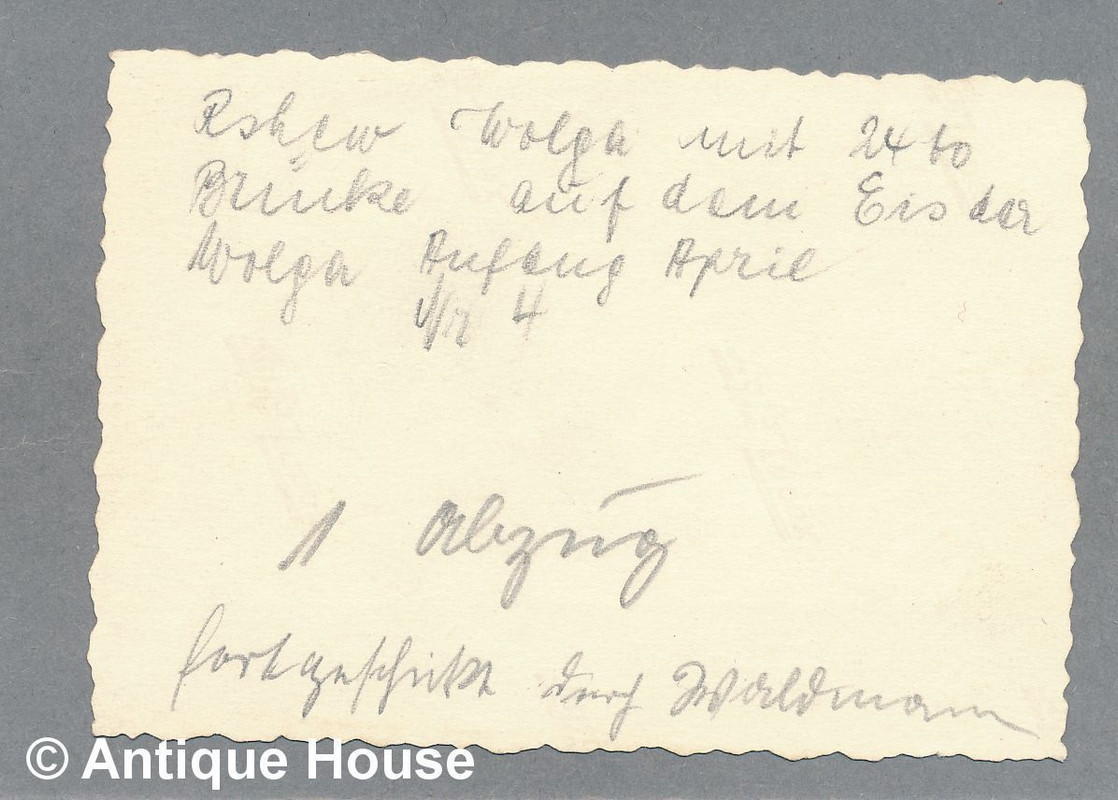 Rshew Wolga mit 24 to
Brücke auf dem Eis der
Wolga Anfang April
4
1 Abzug
fortgeschickt durch Waldmann
© Antique House